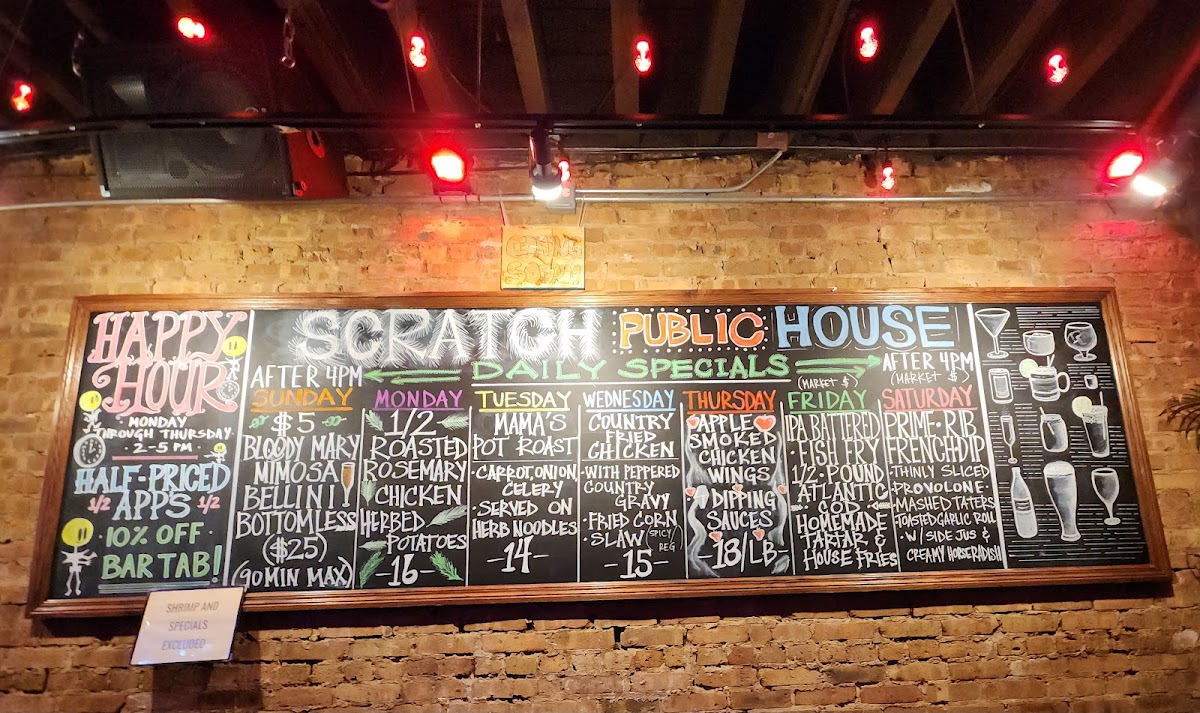 HAPPY
HOUR
MONDAY
THROUGH THURSDAY
- 2-5 PM -
HALF-PRICED
1/2 APPS 1/2
·10% OFF
BAR TAB!
SHRIMP AND
SPECIALS
EXCLUDED
SCRATCH PUBLIC HOUSE
AFTER 4PM
DAILY SPECIALS
AFTER 4PM
(MARKET $)
SUNDAY
$5
BLOODY MARY
MIMOSA
BELLINI
BOTTOMLESS
($25)
(90 MIN MAX)
MONDAY
1/2
ROASTED
ROSEMARY
CHICKEN
HERBED
POTATOES
-16-
TUESDAY
MAMA'S
POT ROAST
·CARROT, ONION,
CELERY
·SERVED ON
HERB NOODLES
-14-
WEDNESDAY
COUNTRY
FRIED
CHICKEN
·WITH PEPPERED
COUNTRY
GRAVY
·FRIED CORN
·SLAW (SPICY/
REG
-15-
THURSDAY
APPLE
SMOKED
CHICKEN
WINGS
DIPPING
SAUCES
-18/LB-
(MARKET $)
FRIDAY
IPA BATTERED
FISH FRY
1/2·POUND
ATLANTIC
COD
HOMEMADE
TARTAR &
HOUSE FRIES
SATURDAY
PRIME·RIB
FRENCH DIP
·THINLY SLICED
PROVOLONE·
·MASHED TATERS
TOASTED GARLIC ROLL
·W/ SIDE JUS &
CREAMY HORSERADISH